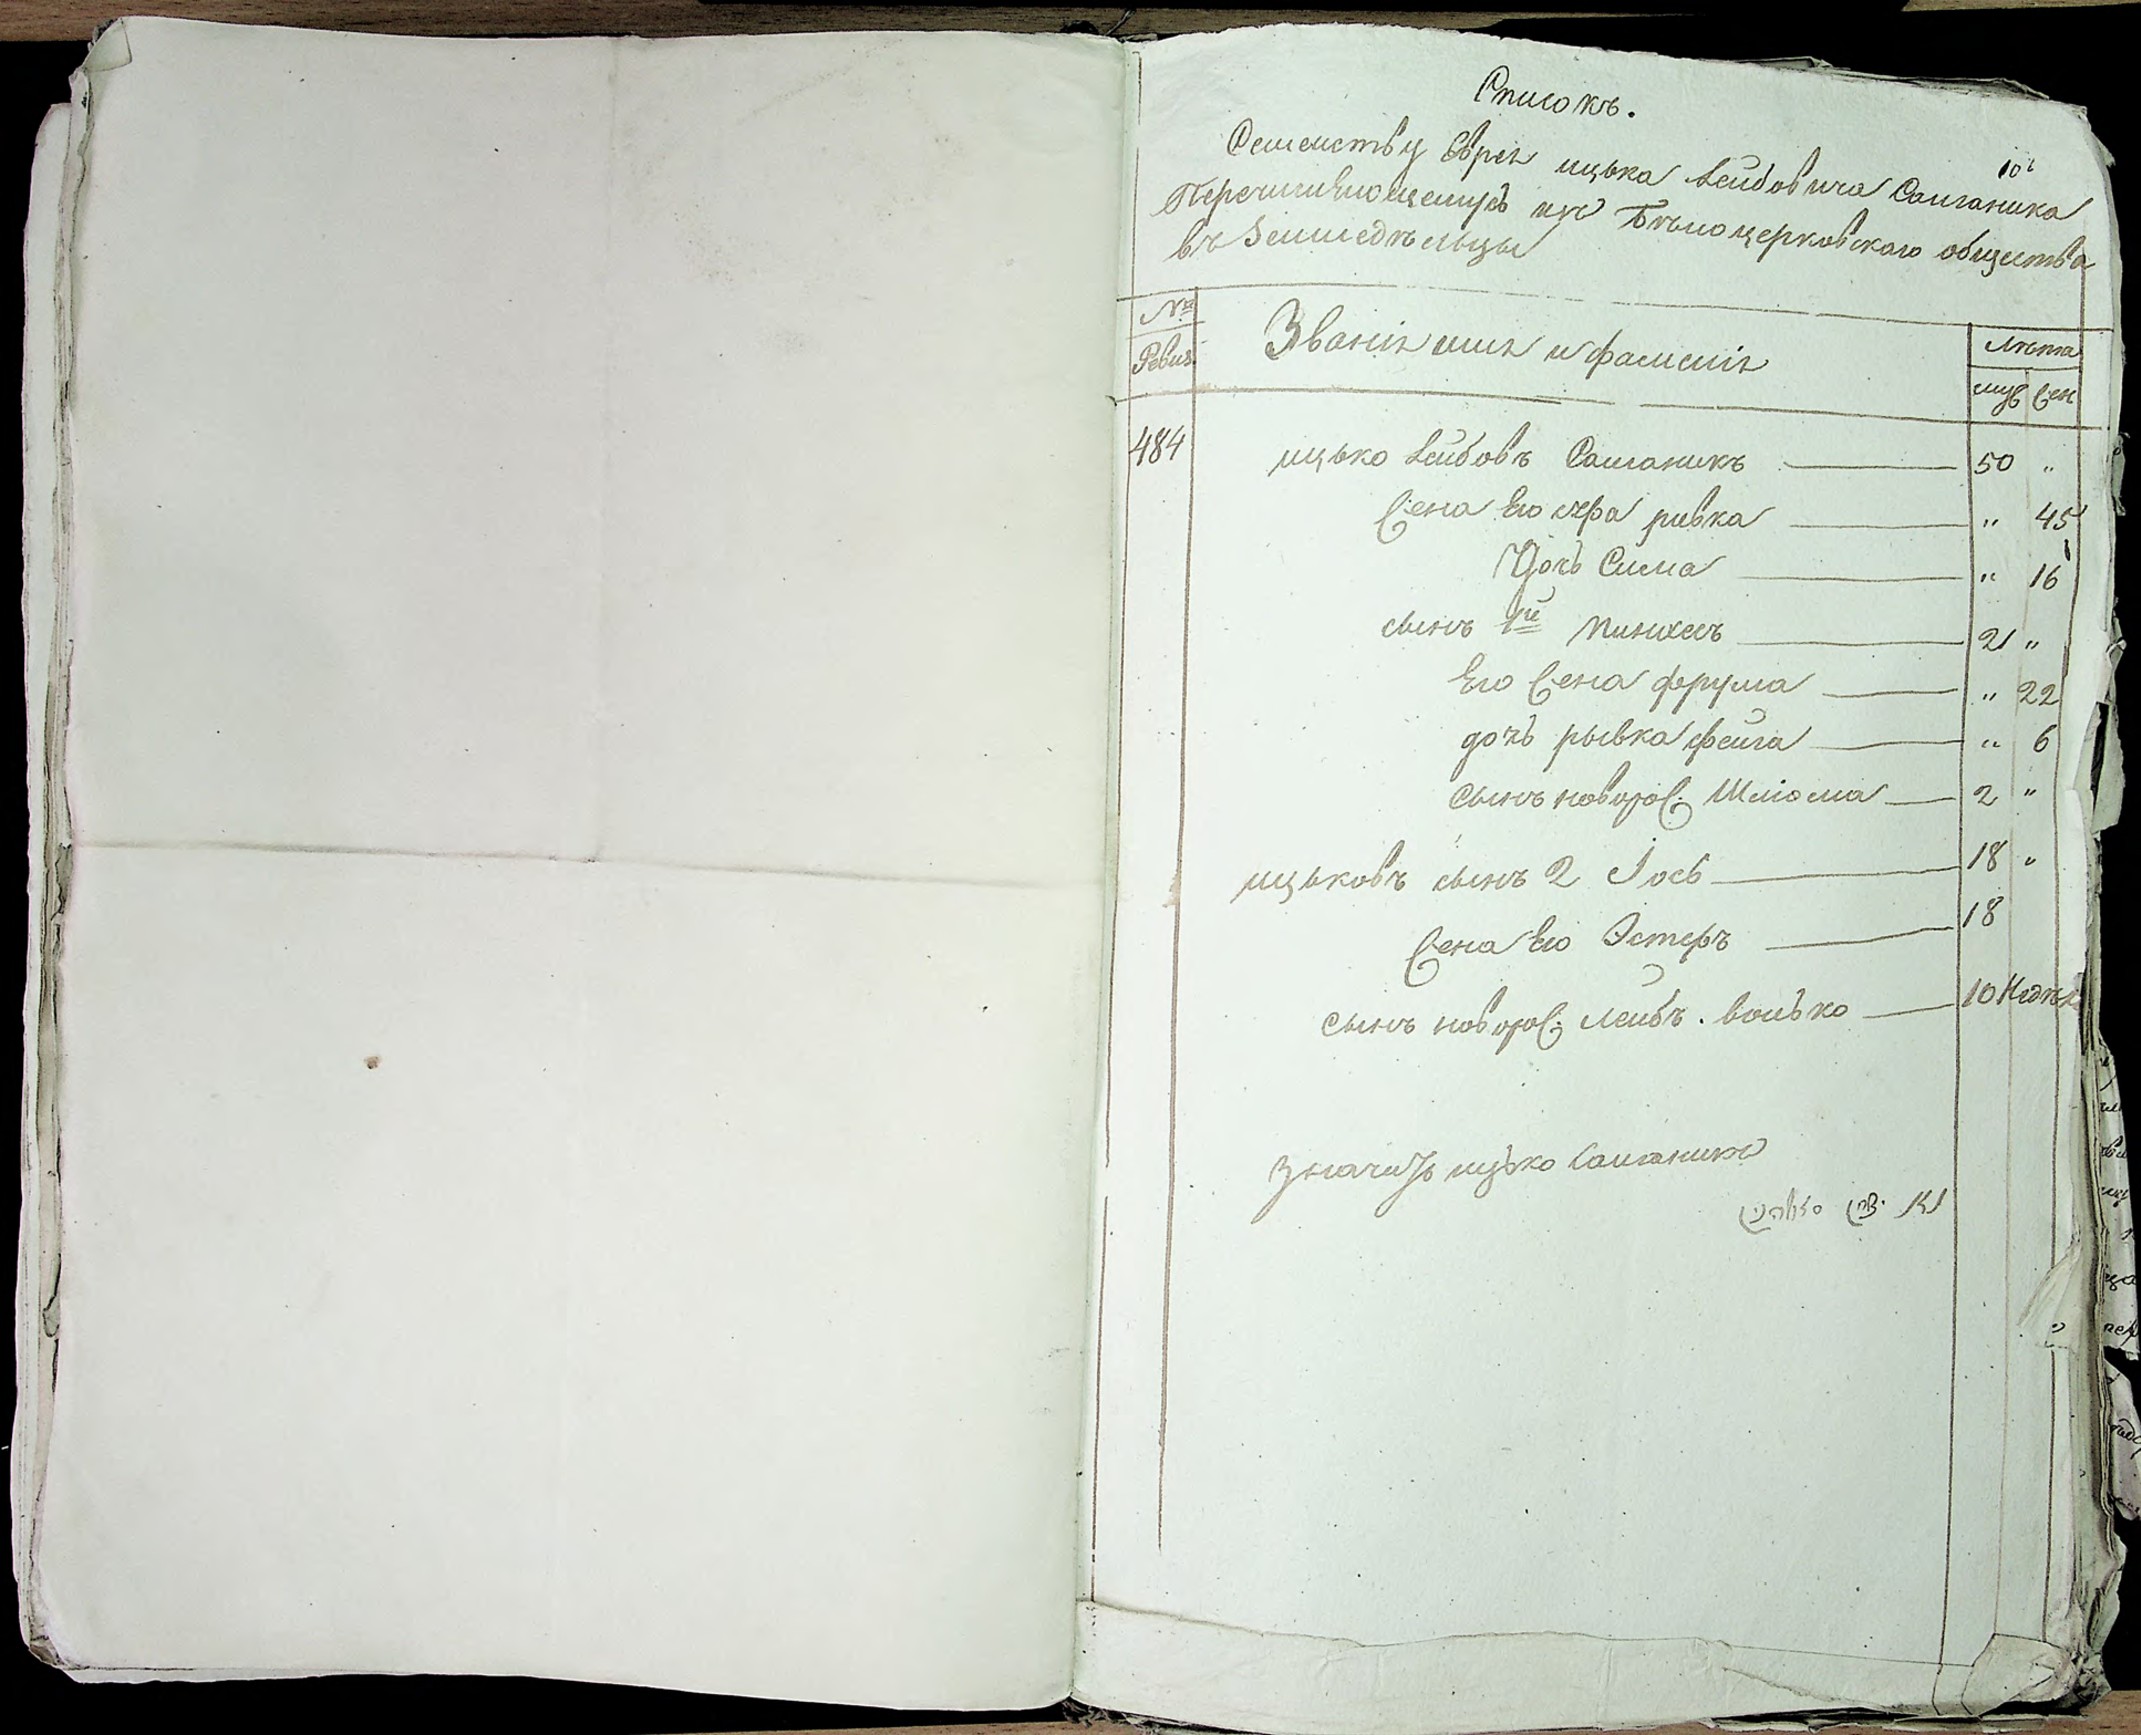 Списокъ.
Семейству Еврея ицька Лейбовича Салганика
Перечисляющемусь изъ Бѣлоцерковскаго общества
въ Земледѣльцы
№
Ревиз.
Званія имя и фамилія
Лѣта
муж жен
484 ицько Лейбовъ Салганикъ 50 „
Жена Его хфа ривка „ 45
Дочь Сима „ 16
сынъ 1й пинхесъ 21 „
Его Жена фрума „ 22
дочь рывка фейга „ 6
Сынъ новорож: Шліома 2 „
ицьковъ сынъ 2 Іось 18 „
Жена Его Эстеръ 18
Сынъ новорож: лейбъ. волько 10 Недѣл
Значитъ ицько Салганикъ